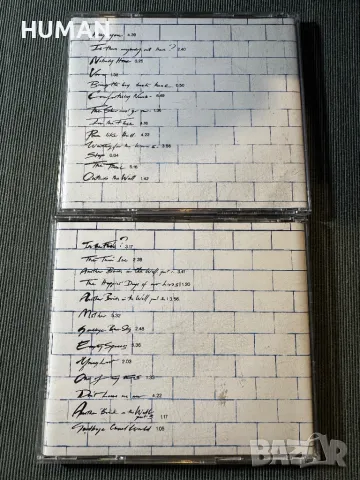 Hey you 4:39
Is there anybody out there? 2:40
Nobody Home 3:25
Vera 1:38
Bring the boys back home
Comfortably Numb
The Show must go on
In the Flesh
Run like Hell 4:22
Waiting for the worms 3:56
Stop
The Trial 5:16
Outside the Wall 1:42
In the Flesh? 3:17
The Thin Ice 2:28
Another Brick in the Wall part 1 3:41
The Happiest Days of our Lives 1:20
Another Brick in the Wall part 2 3:56
Mother 5:32
Goodbye Blue Sky 2:48
Empty Spaces
Young Lust 2:03
One of my turns 1:33
Don't Leave me now 4:22
Another Brick in the Wall part 3 1:17
Goodbye Cruel World 1:05
BAZAR
bg